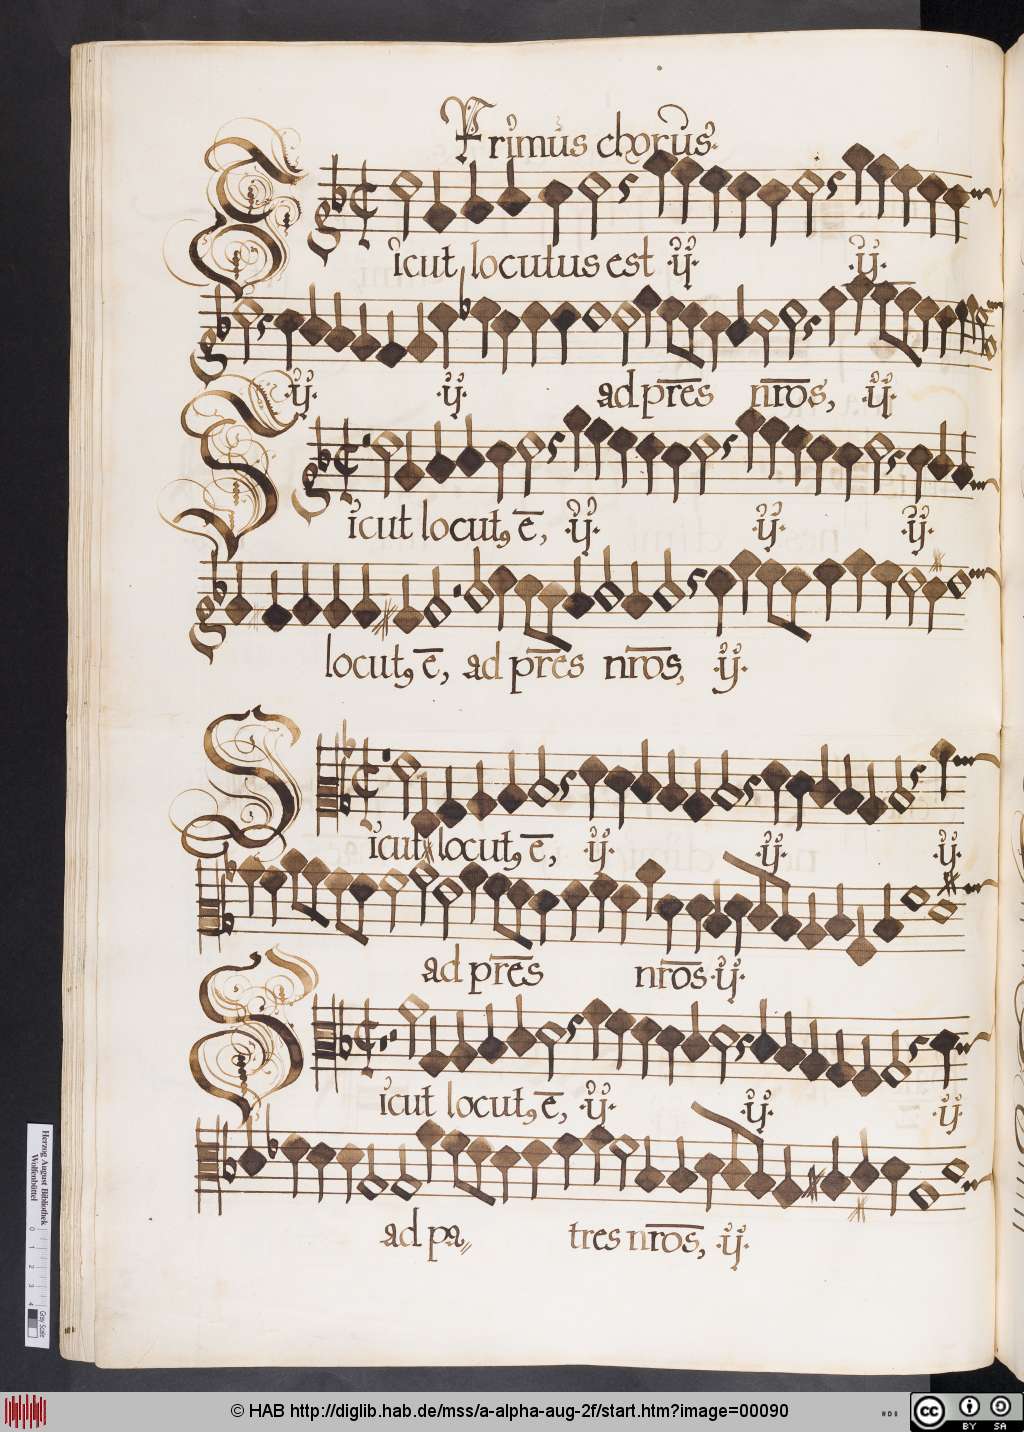 Primus chorus.
Sicut locutus est .ij. .ij.
.ij. .ij. ad p̅r̅e̅s n̅r̅o̅s, .ij.
Sicut locutꝰ e̅, .ij. .ij. .ij.
locutꝰ e̅, ad p̅r̅e̅s n̅r̅o̅s, .ij.
Sicut locutꝰ e̅, .ij. .ij. .ij.
ad p̅r̅e̅s n̅r̅o̅s .ij.
Sicut locutꝰ e̅, .ij. .ij. .ij.
ad pa⸗ tres n̅r̅o̅s, .ij.
Herzog August Bibliothek
Wolfenbüttel
0 1 2 3 4
Gray Scale
© HAB http://diglib.hab.de/mss/a-alpha-aug-2f/start.htm?image=00090
cc BY SA